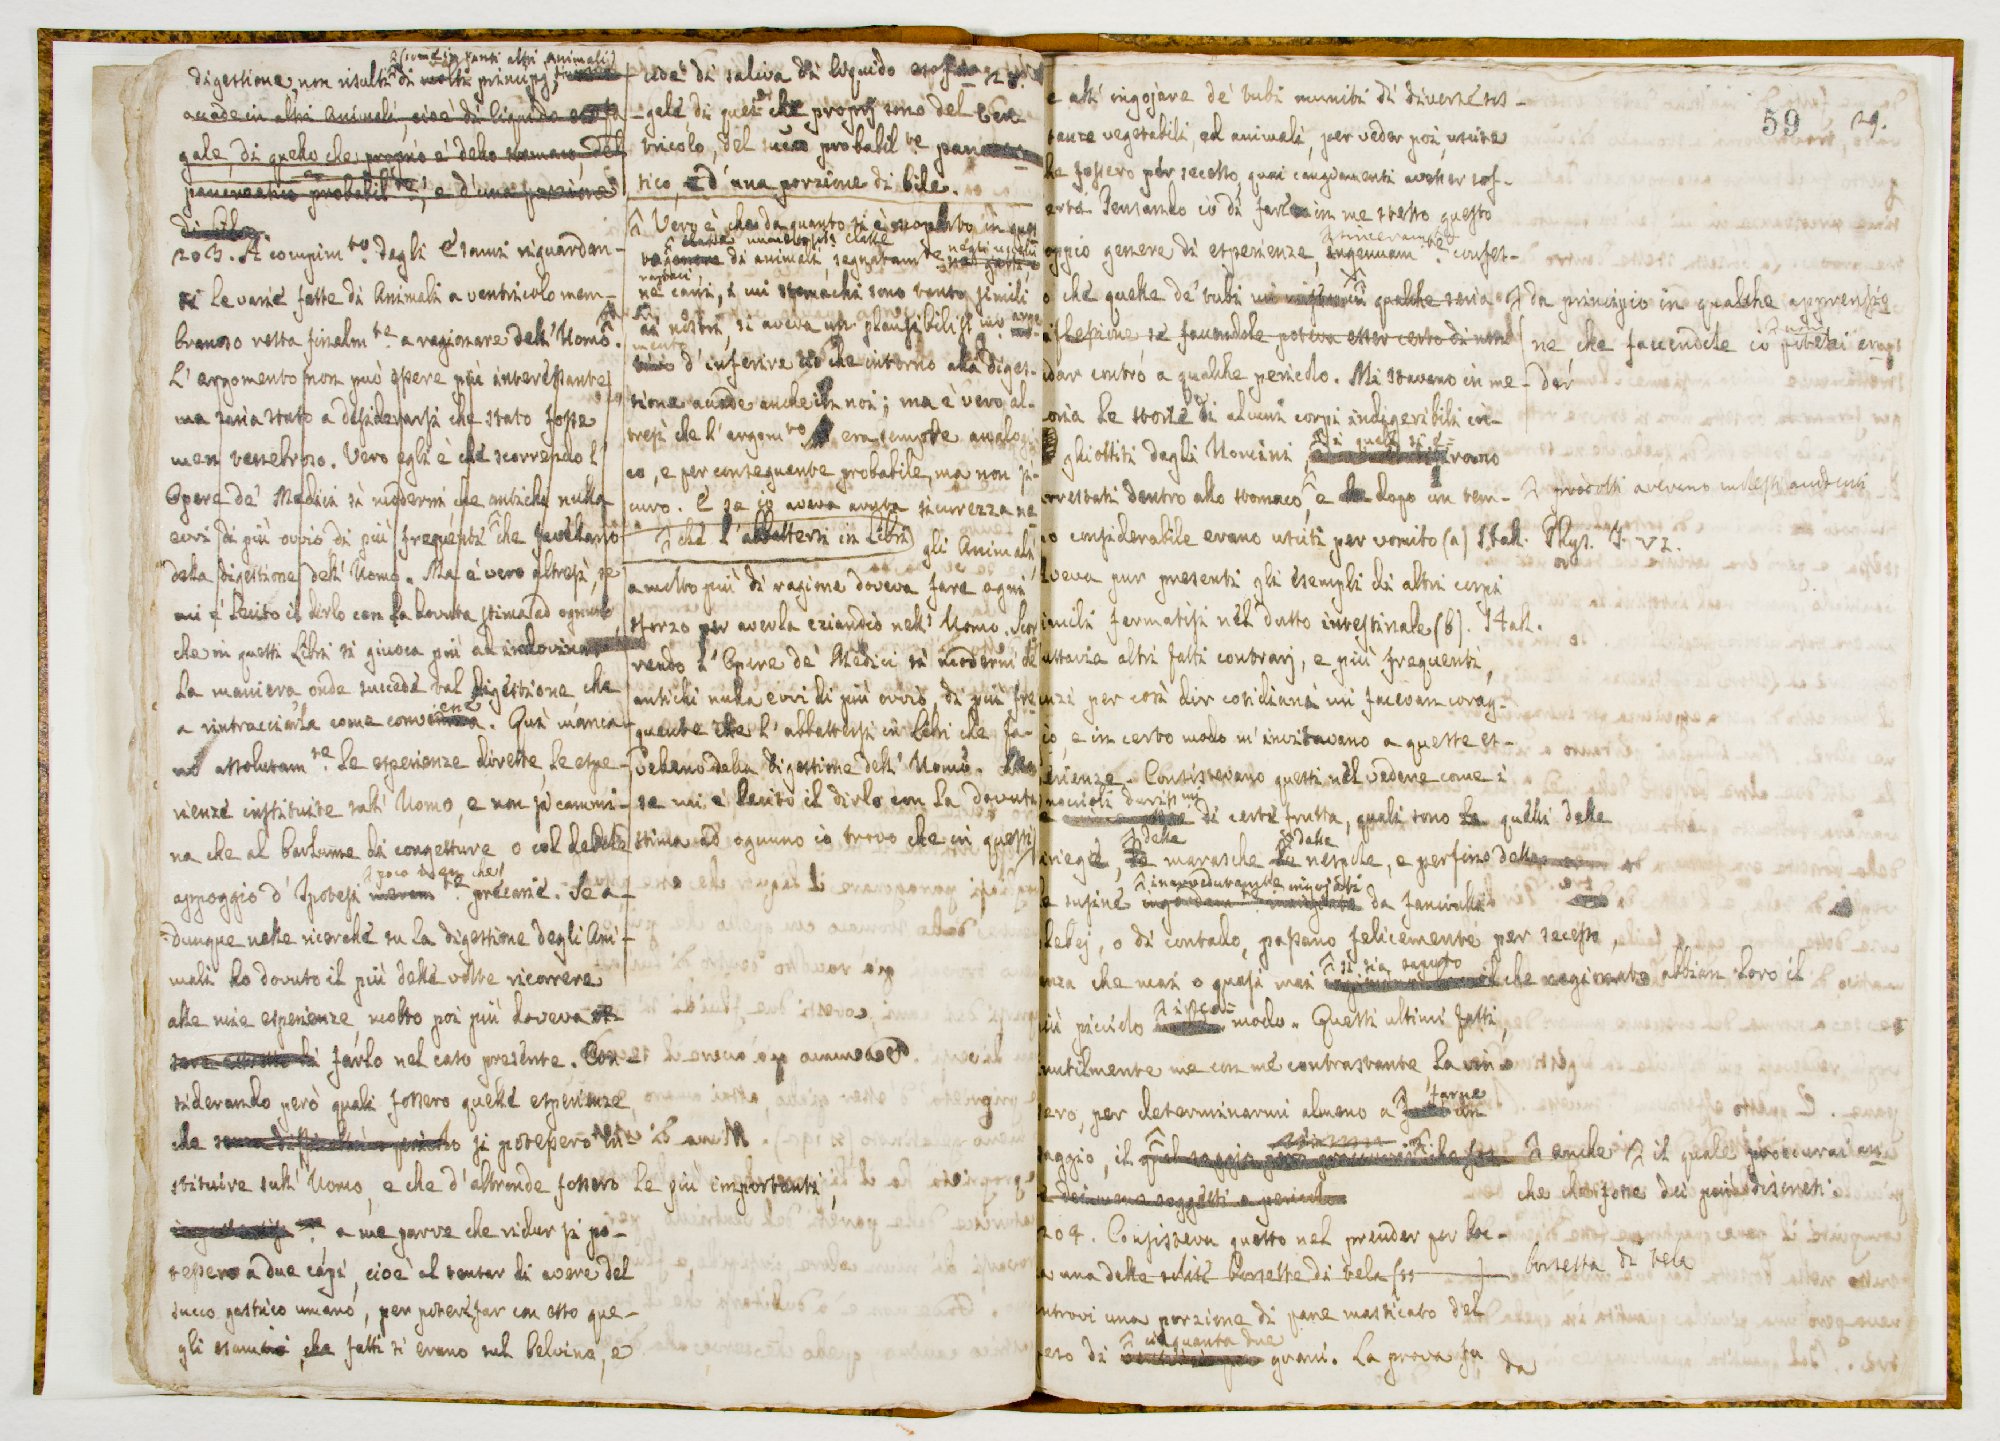 (come in tanti altri animali)
digestione, non risulti di molti principj,
accade in altri Animali, cioè di liquido esofa
gale, di quello che proprio è dello stomaco, del
pancreatico probabil.te, e d'una porzione
di bile.
203. A compim.to degli Esami riguardan-
ti le varie fatte di Animali a ventricolo mem-
branoso resta finalm.te a ragionare dell'Uomo.
L'argomento non può essere più interessante
ma saria stato a desiderarsi che stato fosse
men tenebroso. Vero egli è che scorrendo l'
Opere de' Medici sì moderni che antichi nulla
evvi di più ovvio di più frequente che favellano
della digestione dell'Uomo. Ma è vero altresì, se
mi è lecito il dirlo con la dovuta stima ad ognuno,
che in questi Libri si giuoca più ad indovinar
la maniera, onde succede tal digestione, che
a rintracciarla come conviene. Quì manca-
no assolutam.te le esperienze dirette, le espe-
rienze instituite sull'Uomo, e non si cammi-
na che al barlume di congetture o col debole
poco men che
appoggio d'Ipotesi precarie. Se a-
dunque nelle ricerche su la digestione degli Ani-
mali ho dovuto il più delle volte ricorrere
alle mie esperienze, molto poi più doveva
farlo nel caso presente. Con-
siderando però quali fossero quelle esperienze
che si potessero in-
stituire sull'Uomo, e che d'altronde fossero le più importanti,
a me parve che ridur si po-
tessero a due capi, cioè al tentar di avere del
succo gastrico umano, per poter far con esso que-
gli esami, che fatti si erano sul belvino, e
cioè di saliva di liquido esofa- 28.
-geo, di quei che proprj sono del Ven-
tricolo, del succo probabil.te pancrea
tico, e d'una porzione di bile.
Vero è, che da quanto si è scoperto in ques
ta classe numerosiss. classe
genere di animali, segnatam.te negli uccelli
rapaci
ne' cani, i cui stomachi sono tanto simili
ai nostri, si aveva un plausibiliss.mo argo
mento
d'inferire ciò che intorno alla diges-
tione accade anche in noi; ma è vero al-
tresì che l'argom.to era sempre analogi
co, e per conseguente probabile, ma non si-
curo. E se io aveva avuta sicurezza ne-
che l'abbattersi in Libri
gli Animali,
a molto più di ragione doveva fare ogni
sforzo per averla eziandio nell'Uomo. Scor
rendo l'Opere de' Medici sì moderni che
antichi nulla evvi di più ovvio, di più fre
quente che l'abbattersi in Libri che fa-
vellano della digestione dell'Uomo. Ma
se mi è lecito il dirlo con la dovuta
stima ad ognuno io trovo che in questi
59 29.
e all'ingojare de' tubi muniti di diverse sos-
tanze vegetabili, ed animali, per veder poi, uscite
che fossero per secesso, quai cangiamenti avesser sof-
ferto. Pensando io di farle in me stesso questo
doppio genere di esperienze, sinceramente
ingenuam.te confes-
o che quelle de' tubi mi misero in qualche seria
da principio in qualche apprensio
riflessione se facendole poteva esser certo di non
ne, che facendole io
andar contro a qualche pericolo. Mi stavano in me-
der
moria le storie di alcuni corpi indigeribili in-
ghiottiti dagli Uomini, i quali si e-
rano
arrestati dentro allo stomaco, e dopo un tem-
po considerabile erano usciti per vomito (a) Hall. Phys. T. VI.
Aveva pur presenti gli esempli di altri corpi
simili fermatisi nel dutto intestinale (b). Hall.
Tuttavia altri fatti contrarj, e più frequenti,
anzi per così dir cotidiani mi facevan corag-
gio, e in certo modo m'invitavano a queste es-
perienze. Consistevano questi nel vedere come i
noccioli durissimi
di certe frutta, quali sono quelli delle
ciriegie, delle marasche delle nespole, e perfino delle
susine inavvedutamente ingojati da fanciulli
plebej, o di contado, passano felicemente per secesso,
senza che mai o quasi mai si sia saputo
che cagionato abbian loro il
più picciolo incomodo. Questi ultimi fatti,
inutilmente me con me contrastante la vin-
sero, per determinarmi almeno a farne un
saggio, il
il quale proccurai an
che che fosse dei più discreti.
204. Consisteva questo nel prender per boc-
ca una delle solite borsette di tela
borsetta di tela
entrovi una porzione di pane masticato del
peso di cinquanta due
grani. La prova fu da